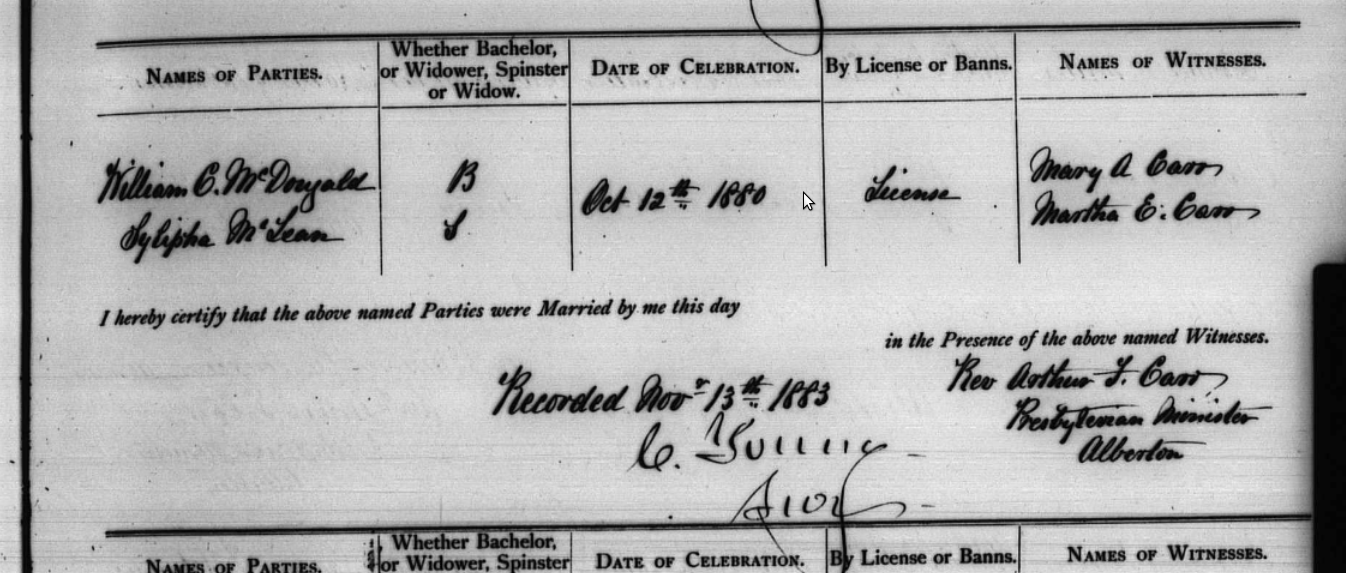 NAMES OF PARTIES.
Whether Bachelor,
or Widower, Spinster
or Widow.
DATE OF CELEBRATION.
By License or Banns.
NAMES OF WITNESSES.
William C. McDougald
B
Oct 12th 1880
License
Mary A Carr
Sylipha McLean
S
Martha E. Carr
I hereby certify that the above named Parties were Married by me this day
in the Presence of the above named Witnesses.
Recorded Novr 13th 1883
Rev Arthur F. Carr
Presbyterian Minister
Alberton
C. Young
NAMES OF PARTIES.
Whether Bachelor,
or Widower, Spinster
DATE OF CELEBRATION.
By License or Banns.
NAMES OF WITNESSES.